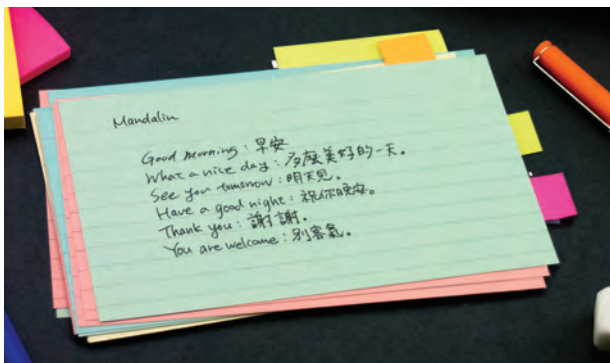 Mandalin
Good morning : 早安
What a nice day : 多麼美好的一天。
See you tomorrow : 明天見。
Have a good night : 祝你晚安。
Thank you : 謝謝.
You are welcome : 別客氣。